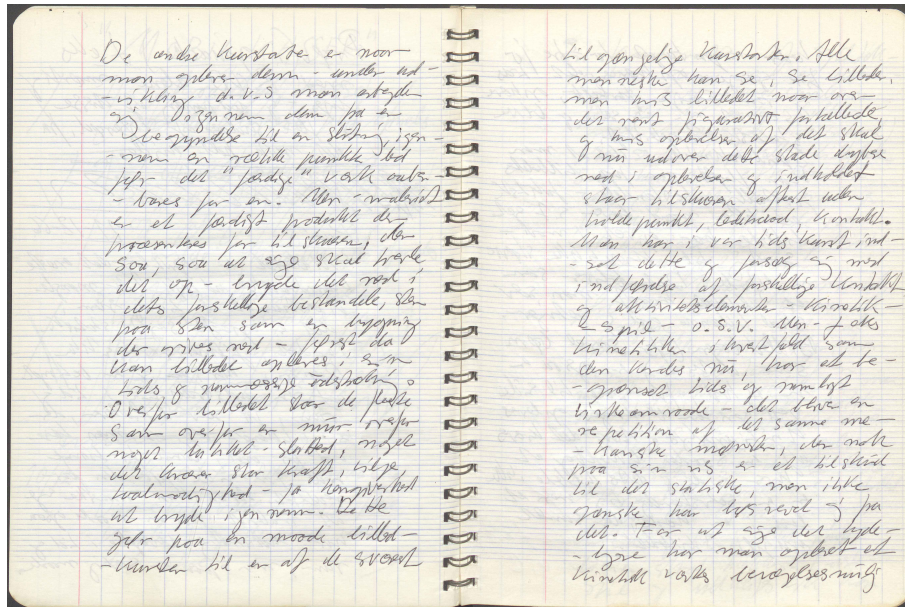 De andre kunstarter er noor
man oplever dem - under ud-
-vikling d.v.s man arbejder
sig igennem dem fra en
begyndelse til en slutning, igen-
-nem en række punkter
før det "færdige" værk aaben-
-bares for en. Men - maleriet
er et færdigt produkt der
præsenteres for tilskueren, der
saa, saa at sige skal
det op - bryde det ned i
dets forskellige bestanddele, sten
paa sten som en bygning
der rives ned - først da
kan billedet opleves, i en
tids og rummæssig udstrækning.
Overfor billedet staar de fleste
som overfor en mur overfor
noget lukket - sluttet, noget
det kræver stor kraft, vilje,
taalmodighed - ja hengivenhed
at bryde igennem. Dette
gør paa en maade billed-
-kunsten til en af de sværest
tilgængelige kunstarter. Alle
mennesker kan se, se billeder,
men hvis billedet naar over
det rent figurativt fortællende,
og hvis oplevelsen af det skal
nu udover dette stade dybere
ned i oplevelsen og indholdet
staar tilskueren oftest uden
holdepunkt, ledetraad, kontakt.
Man har i vor tids kunst ind-
-set dette og forsøg sig med
indførelse af forskellige kontakt
og aktivitetselementer - kinetik -
- spil - o.s.v. Men
kinetikken i hvert fald som
den kendes nu, har et be-
-grænset tids og rumligt
virkeomraade - det bliver en
repetition af det samme me-
-kaniske mønster, der nok
paa sin vis er et tilskud
til det statiske, men ikke
ganske har løsrevet sig fra
det. For at sige det tyde-
-ligere har man oplevet et
kinetisk værks bevægelsesmulig